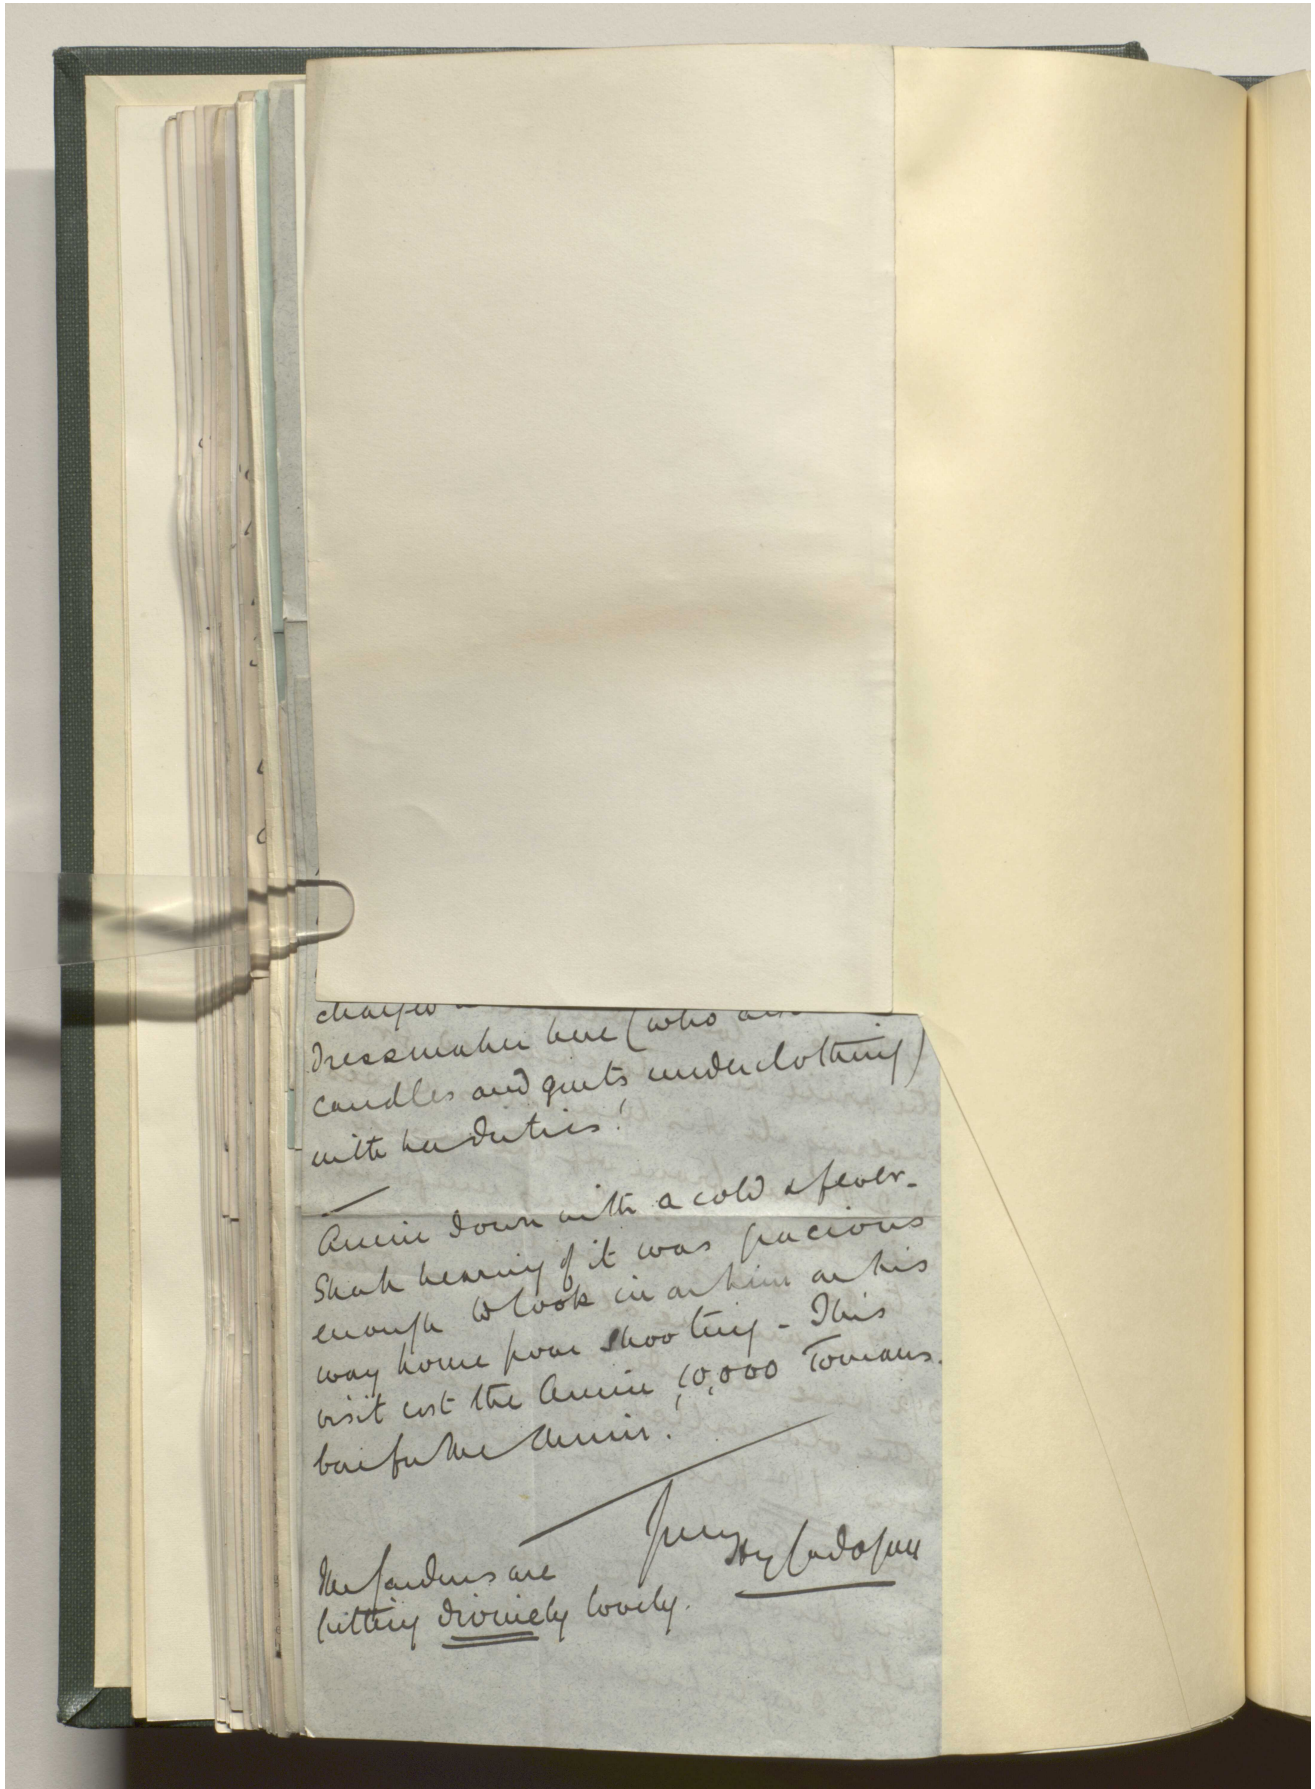 charged
Dressmaker here (who also
candles and gents underclothing)
with her duties!
Amin down with a cold & fever.
Shah hearing of it was gracious
enough to look in on him on his
way home from shooting - This
visit cost the Amin 10,000 Tomans.
the Amin.
Yrs
Hy Cadogan
The gardens are
getting divinely lovely.